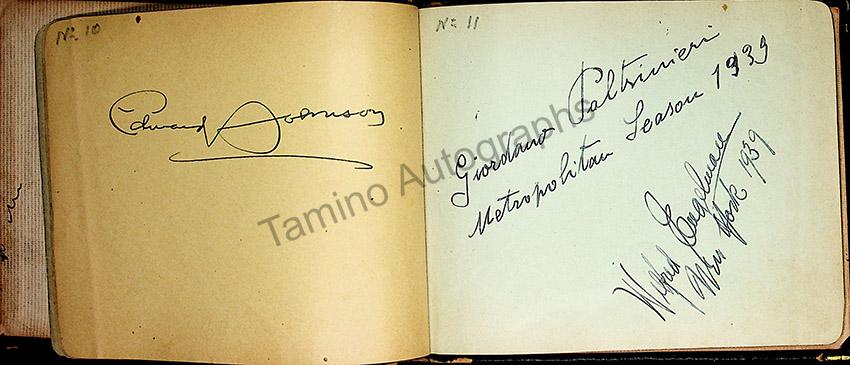 No 10
Edward Johnson
No 11
Giordano Paltrinieri
Metropolitan Season 1939
Wilfred Engelman
New York 1939
Tamino Autographs